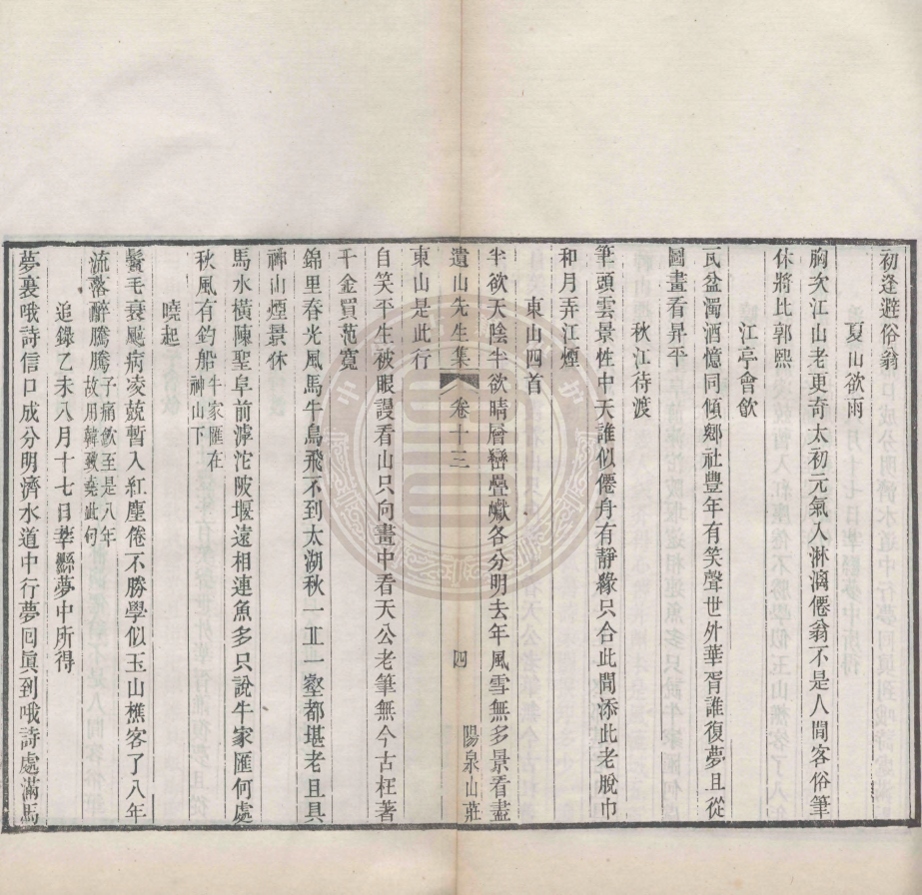 初逢避俗翁
夏山欲雨
胸次江山老更奇太初元氣入淋漓僊翁不是人間客俗筆
休將比郭熙
江亭會飲
瓦盆濁酒憶同傾鄉社豐年有笑聲世外華胥誰復夢且從
圖畫看昇平
秋江待渡
筆頭雲景性中天誰似僊舟有靜緣只合此間添此老脫巾
和月弄江煙
東山四首
半欲天陰半欲晴層巒疊巘各分明去年風雪無多景看盡
遺山先生集 卷十三 四 陽泉山莊
東山是此行
自笑平生被眼謾看山只向畫中看天公老筆無今古枉著
千金買范寬
錦里春光風馬牛鳥飛不到太湖秋一丘一壑都堪老且具
神山煙景休
馬水橫陳聖阜前滹沱陂堰遠相連魚多只說牛家匯何處
秋風有釣船牛家匯在神山下
曉起
鬢毛衰颯病凌兢暫入紅塵倦不勝學似玉山樵客了八年
流落醉騰騰子痛飲至是八年故用韓致堯此句
追錄乙未八月十七日莘縣夢中所得
夢裏哦詩信口成分明濟水道中行夢回眞到哦詩處滿馬